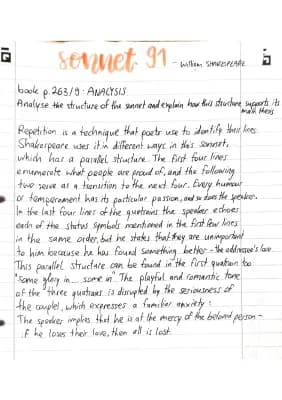 sonnet 91 - William SHAKESPEARE
book p.263/9 · ANALYSIS
Analyse the structure of the sonnet and explain how this structure supports its
main thesis
Repetition is a technique that poets use to identify their lines.
Shakespeare uses it in different ways in this sonnet,
which has a parallel structure. The first four lines
enumerate what people are proud of, and the following
two serve as a transition to the next four. Every humour
or temperament has its particular passion, and so does the speaker.
In the last four lines of the quatrains the speaker echoes
each of the status symbols mentioned in the first few lines
in the same order, but he states that they are unimportant
to him because he has found something better - the addressee's love.
This parallel structure can be found in the first quatian too:
"Some glory in... some in". The playful and romantic tone
of the three quatrains is disrupted by the seriousness of
the couplet, which expresses a familiar anxiety:
The speaker implies that he is at the mercy of the beloved person -
if he loses their love, then all is lost.